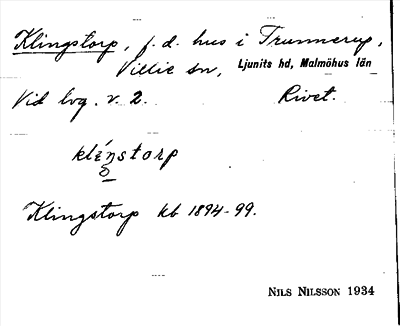 Klingstorp, f. d. hus i Trunnerup,
Villie sn, Ljunits hd, Malmöhus län
Vid lvg. v. 2. Rivet.
kléŋstorp
Klingstorp kb 1894-99.
NILS NILSSON 1934